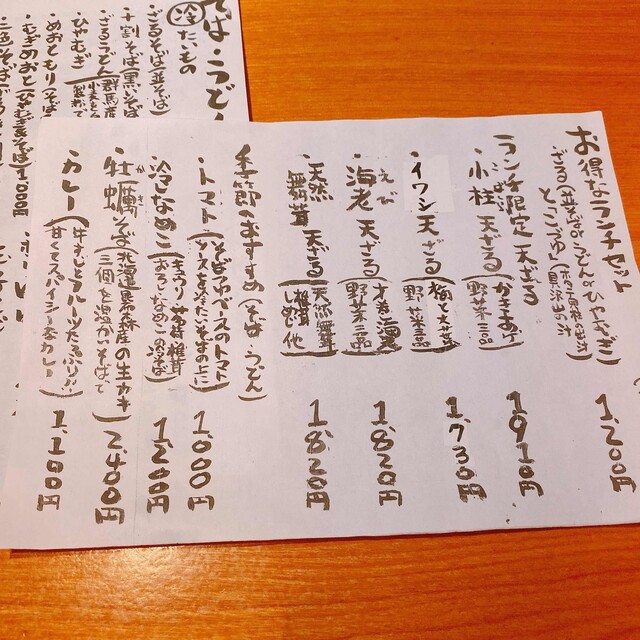 お得なランチセット
・ざる(並そばorうどんorひやむぎ) 1,200円
ランチ限定 天ざる
・小柱 天ざる(かきあげ 野菜三品) 1,910円
・イワシ 天ざる(梅としそ 野菜三品) 1,730円
・海老 天ざる(才巻海老 野菜三品) 1,820円
えび
・天然舞茸 天ざる(天然舞茸 椎茸 しめじ 他) 1,820円
季節のおすすめ(そば・うどん)
・トマト(そばつゆベースのトマトソースを冷たいそばの上に) 1,000円
・冷しなめこ 1,200円
・牡蠣そば(北海道厚岸産の生ガキ三個を温かいそばで) 2,400円
かき
・カレー(牛すじとフルーツたっぷり!! 甘くてスパイシーなカレー) 1,100円
そば・うどん
冷たいもの
・ざるそば(並そば)
・十割そば(黒いそば
・ざるうどん(群馬産
・ひやむぎ
・めおともり(そば